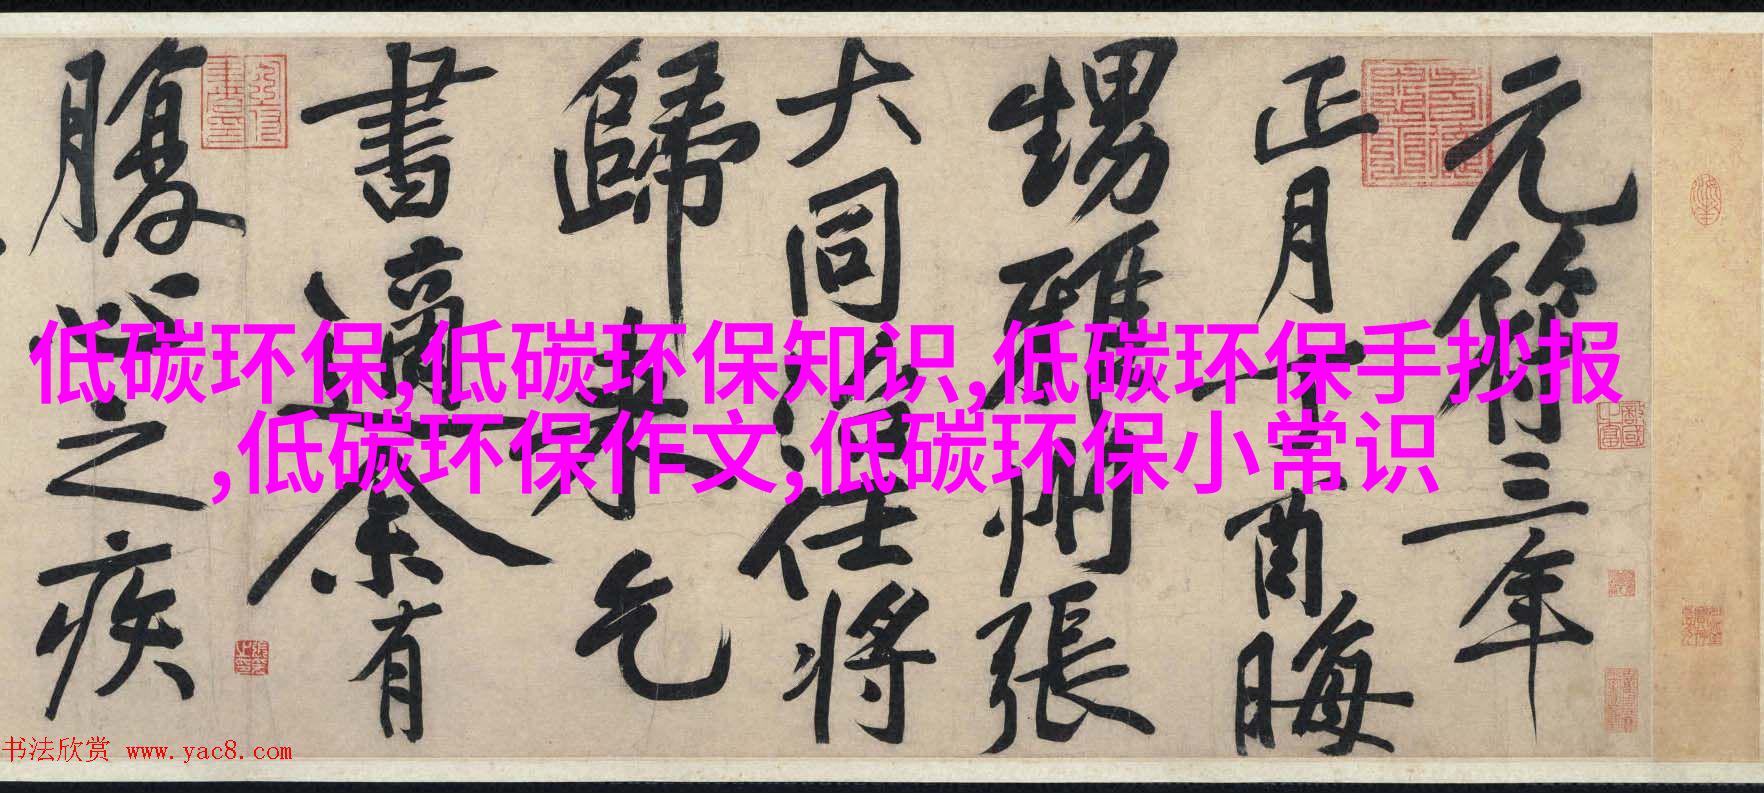 元符三年
正月丁酉晦
甥雅州張
大同治任將
歸来乞
書適余有
腹心之疾
低碳环保,低碳环保知识,低碳环保手抄报
,低碳环保作文,低碳环保小常识
书法欣赏 www.yac8.com